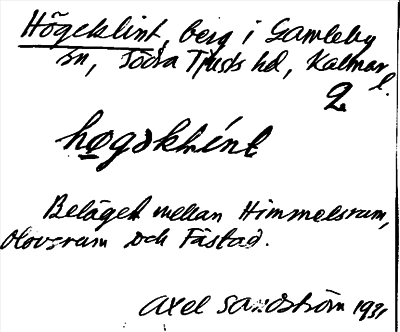 Högeklint, berg i Gamleby
sn, Södra Tjusts hd, Kalmar
2 l.
høgəklint
Beläget mellan Himmelsrum,
Olovsrum och Fästad.
Axel Sandström 1931